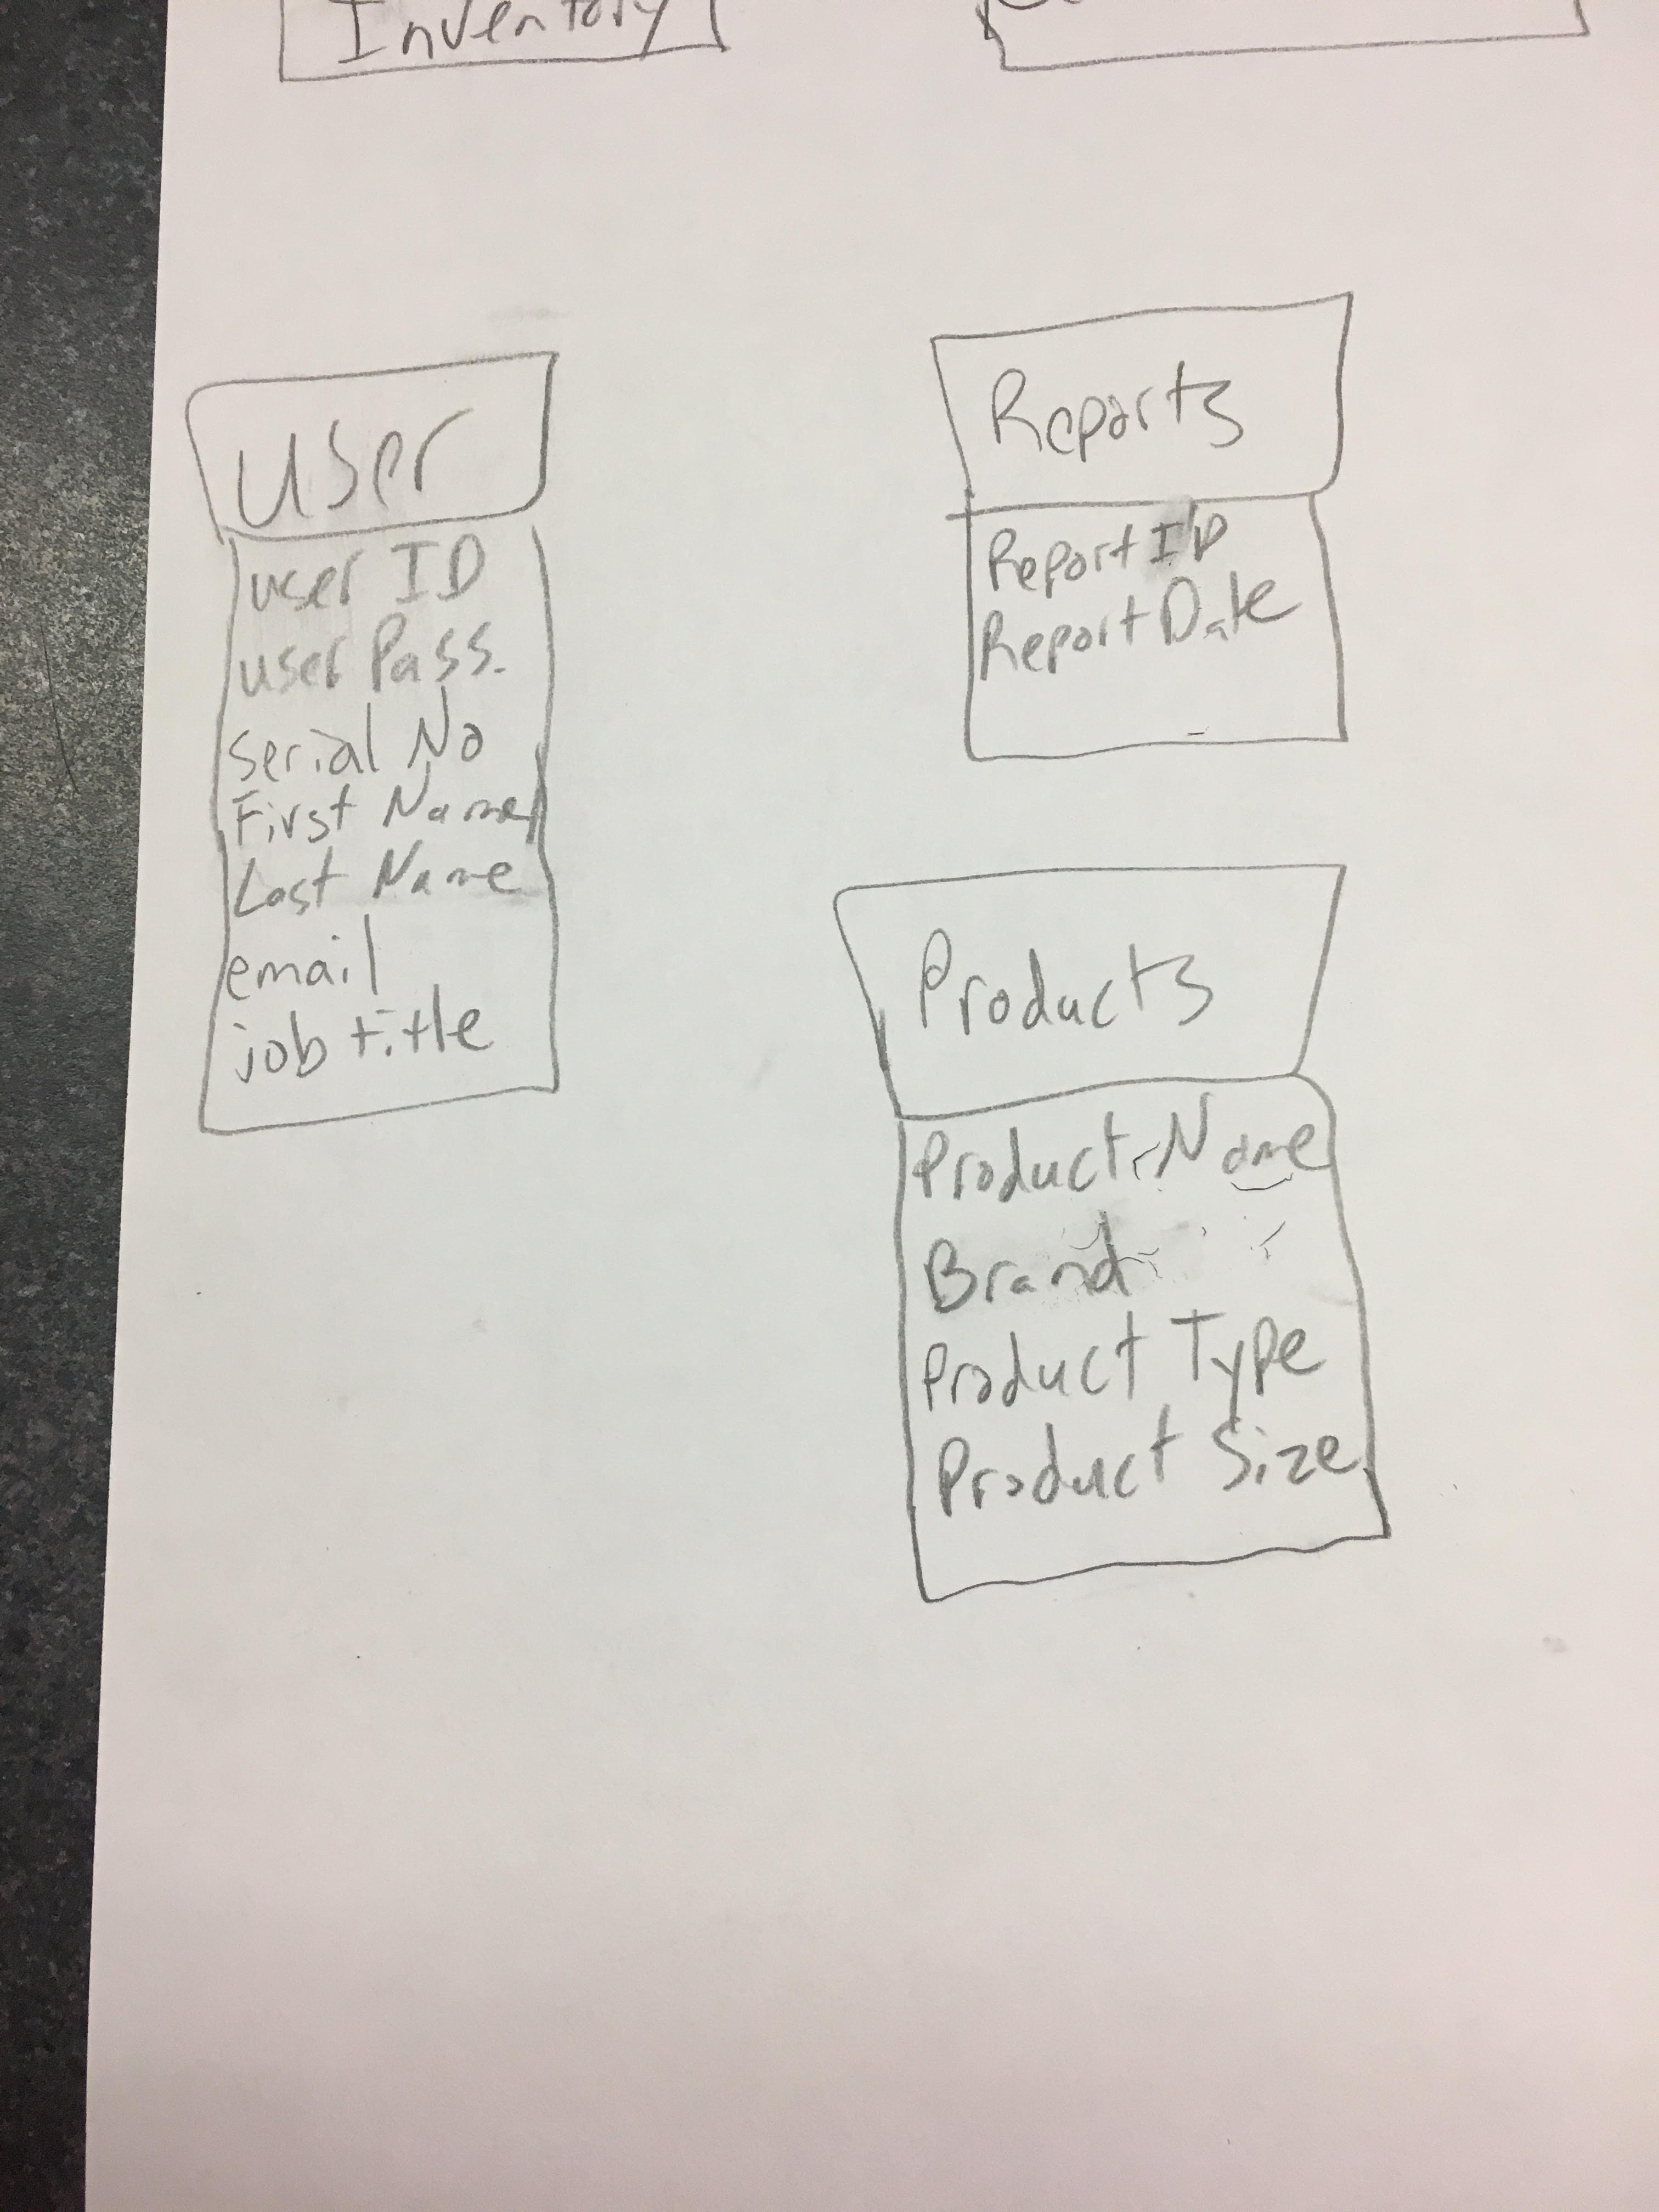 Inventory
User
user ID
user Pass.
Serial No
First Name
Last Name
email
job title
Reports
Report ID
Report Date
Products
Product Name
Brand
Product Type
Product Size